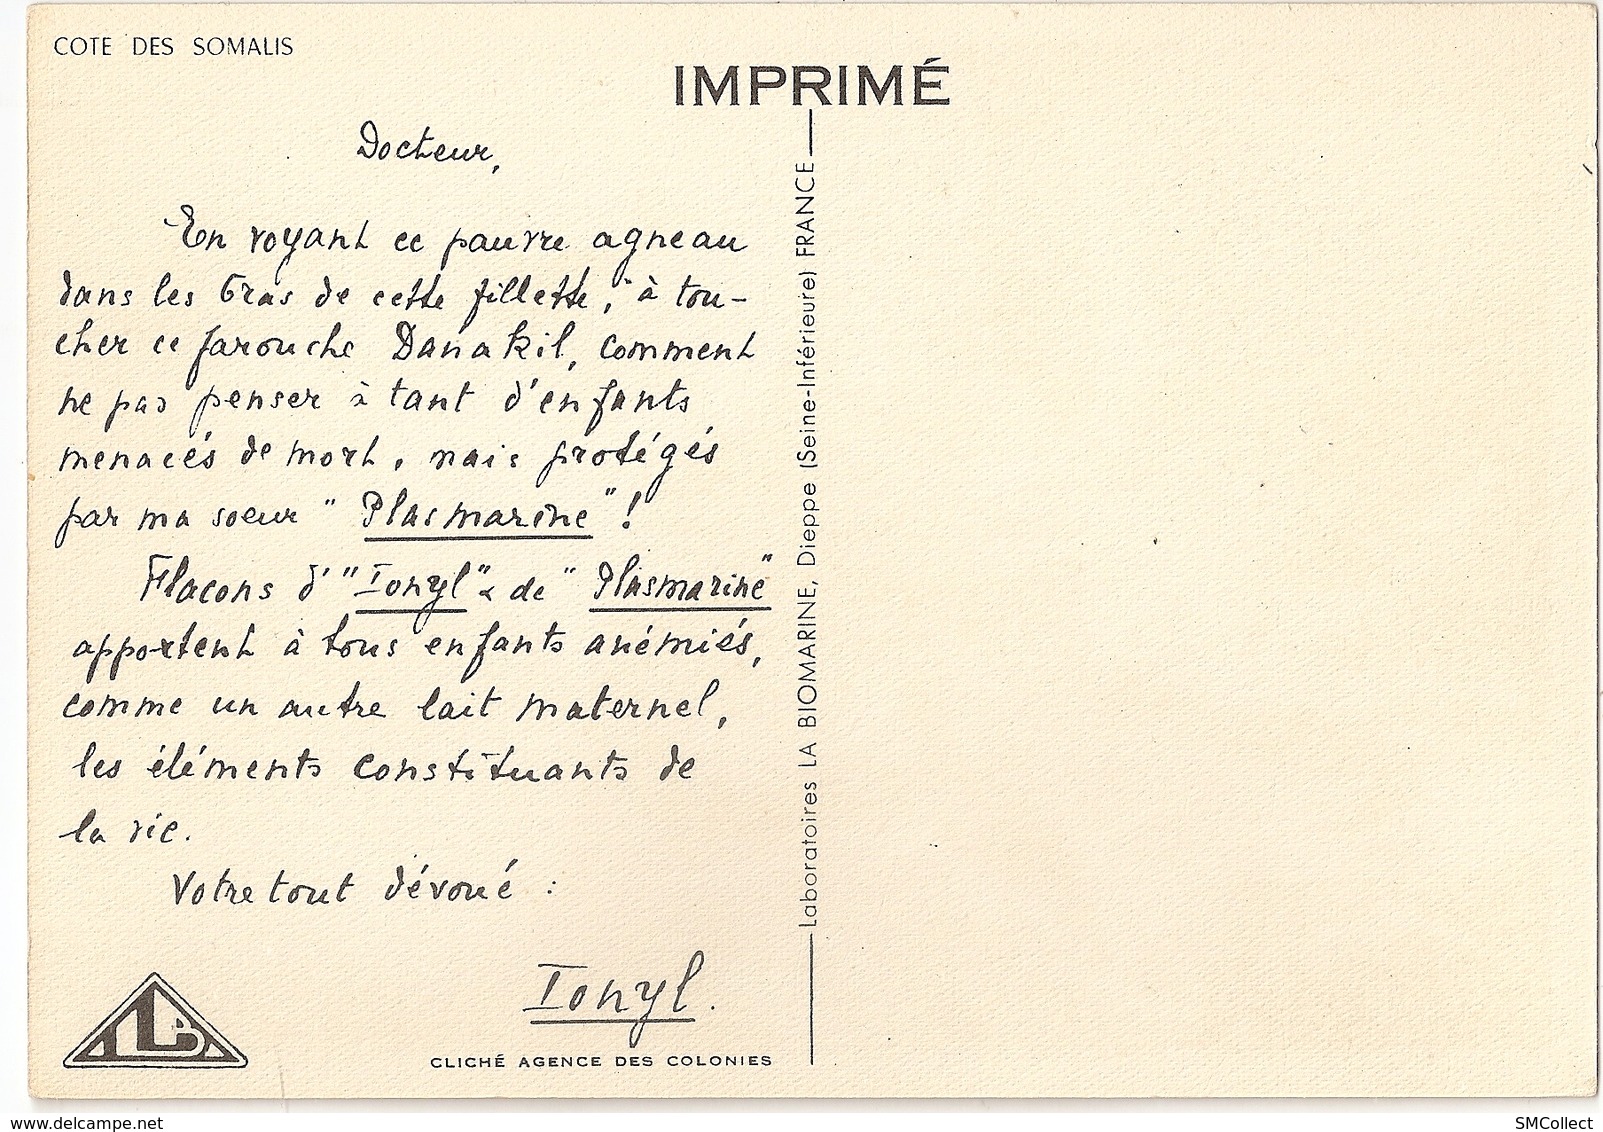 COTE DES SOMALIS
IMPRIMÉ
Docteur,
En voyant ce pauvre agneau
dans les bras de cette fillette, à tou-
cher ce farouche Danakil, comment
ne pas penser à tant d'enfants
menacés de mort, mais protégés
par ma soeur "Plasmarine"!
Flacons d'"Ionyl" & de "Plasmarine"
apportent à tous enfants anémiés,
comme un autre lait maternel,
les éléments constituants de
la vie.
Votre tout dévoué :
Ionyl.
CLICHÉ AGENCE DES COLONIES
Laboratoires LA BIOMARINE, Dieppe (Seine-Inférieure) FRANCE
LB
www.delcampe.net
SMCollect